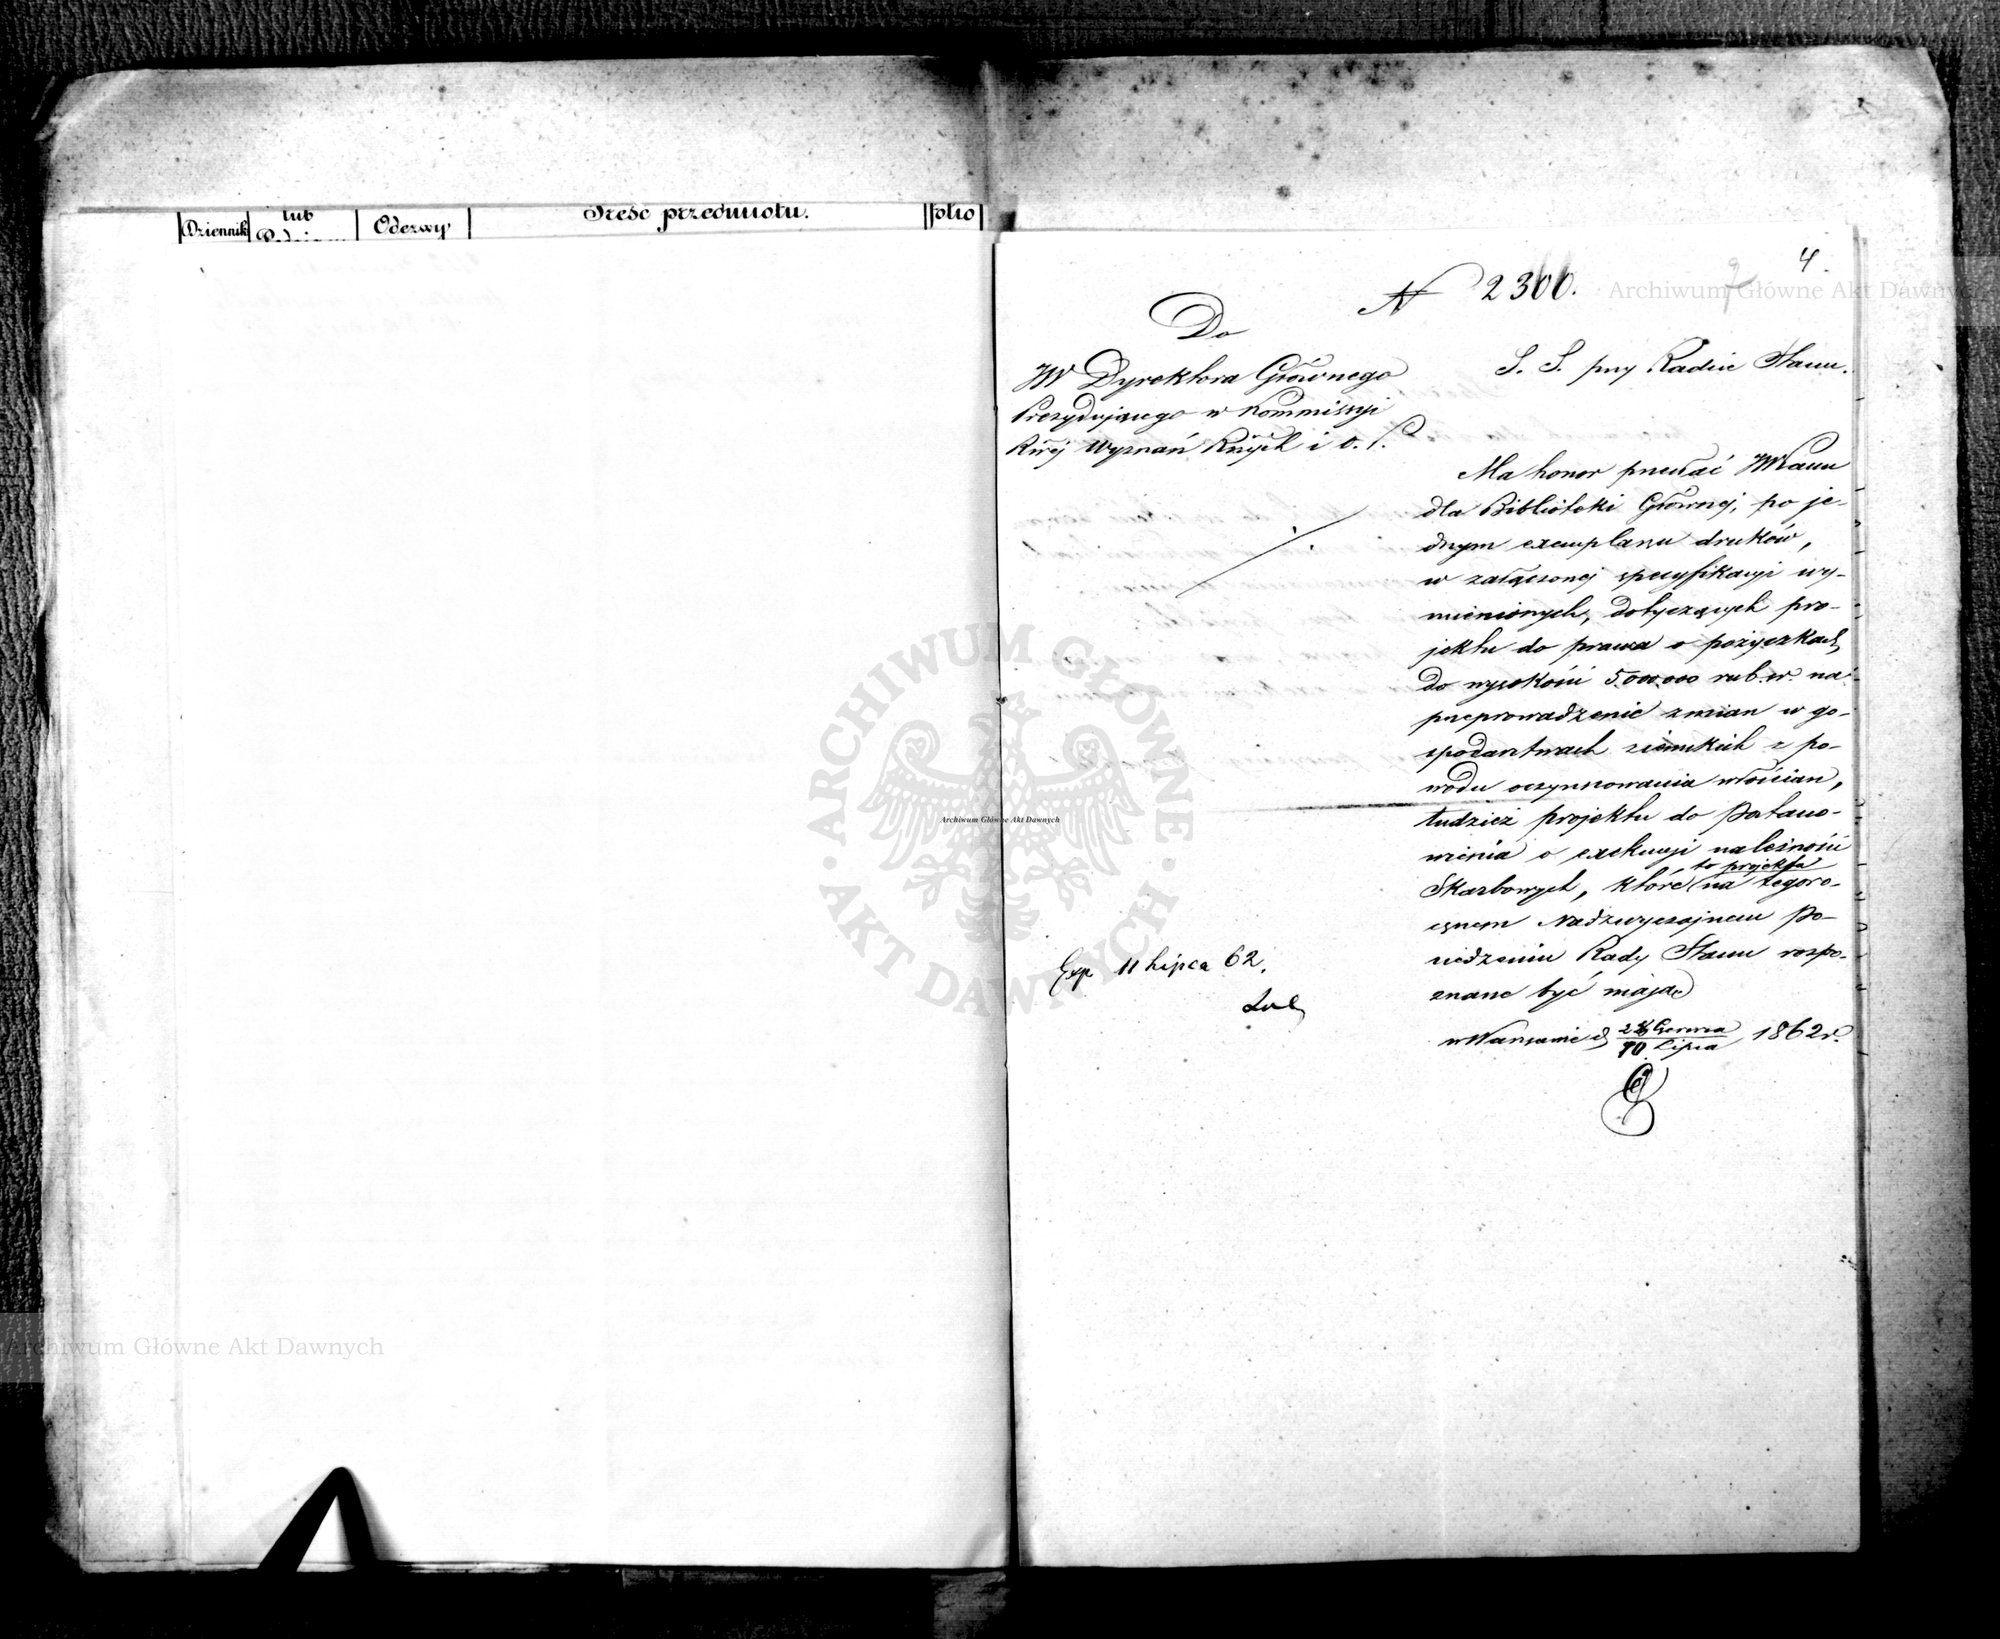 Dziennik
lub
Odezwy
Treść przedmiotu.
folio
4.
N 2300.
Do
JW Dyrektora Głównego
Prezydującego w Kommissyi
Rzwej Wyznań Rnych i O. P.
S. S. przy Radzie Stanu.
Ma honor przesłać JWPanu
dla Biblioteki Głównej, po je-
dnym exemplarzu druków,
w załączonej specyfikacyi wy-
mienionych, dotyczących pro-
jektu do prawa o pożyczkach
do wysokości 5.000.000 rub. sr. na
przeprowadzenie zmian w go-
spodarstwach ziemskich z po-
wodu oczynszowania włościan,
tudzież projektu do Postano-
wienia o exekucyi należności
Skarbowych, które to projekta na tegoro-
cznem Nadzwyczajnem Po-
siedzeniu Rady Stanu rozpo-
znane być mają
w Warszawie d. 28 Czerwca / 10 Lipca 1862 r.
Exp 11 Lipca 62.
Archiwum Główne Akt Dawnych
ARCHIWUM GŁÓWNE AKT DAWNYCH
Archiwum Główne Akt Dawnych
Archiwum Główne Akt Dawnych